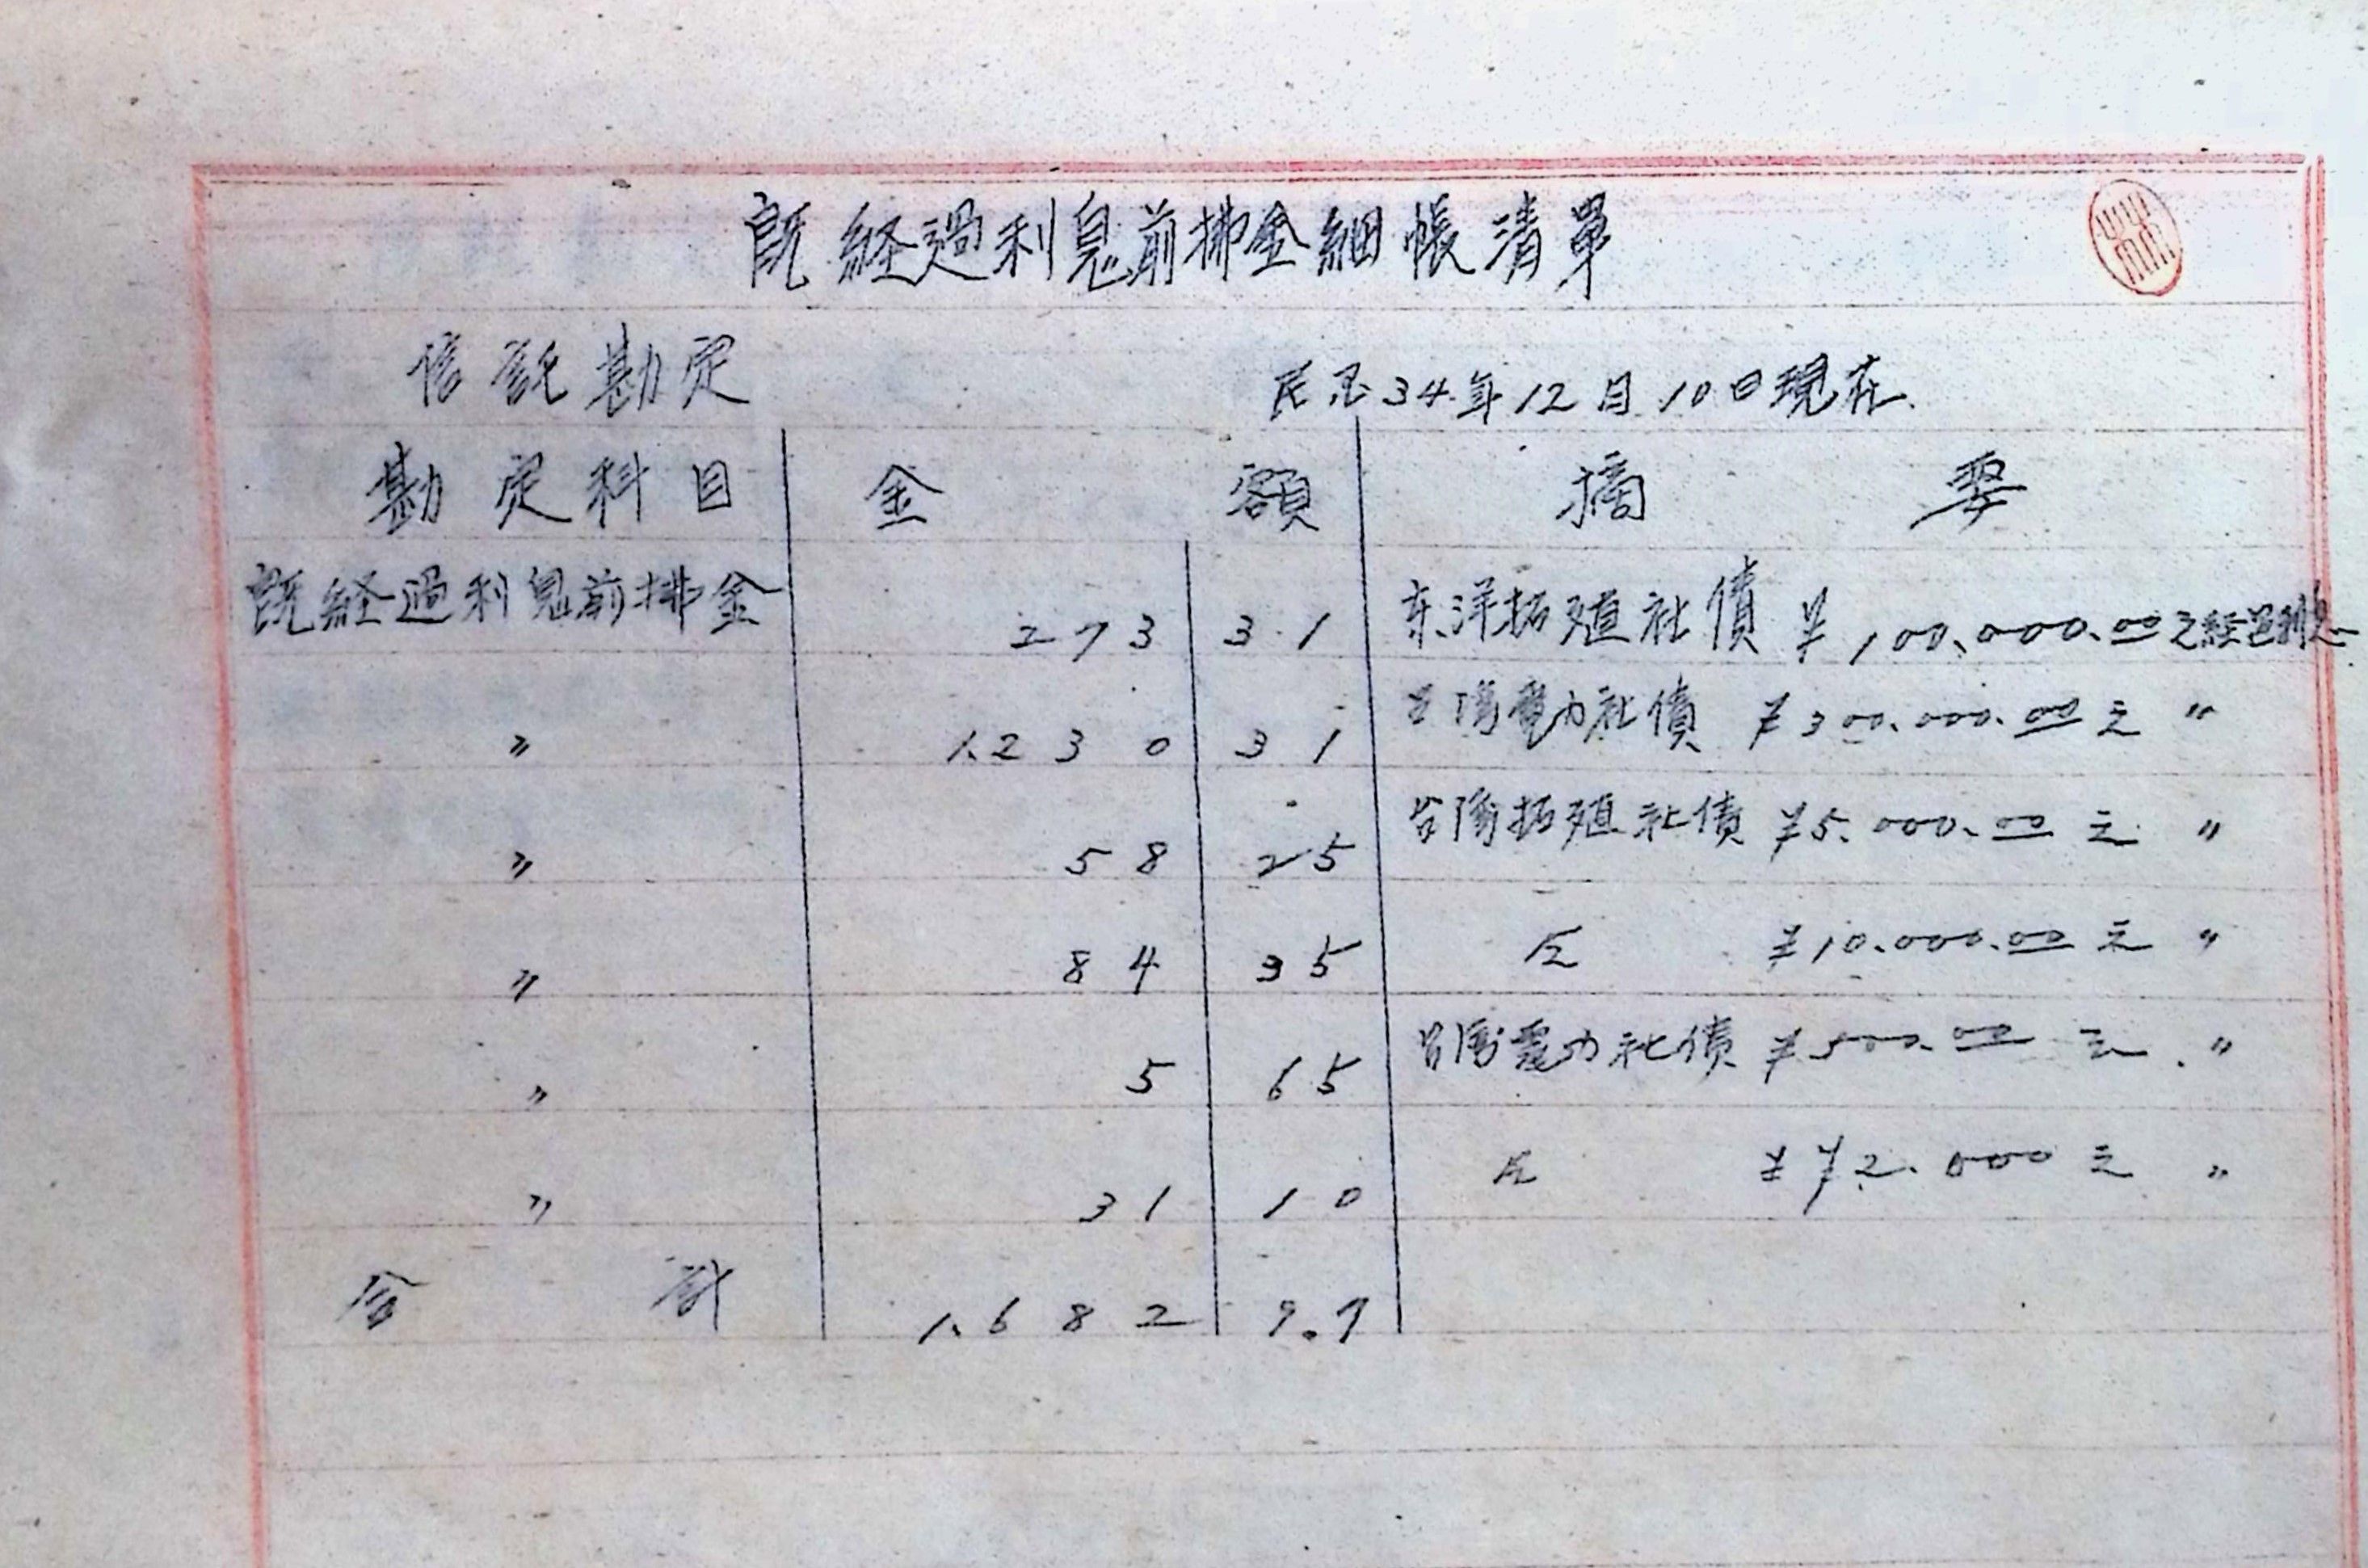 既経過利息前拂金細帳清單
信託勘定 民国34年12月10日現在.
勘定科目 金額 摘要
既経過利息前拂金 273 31 東洋拓殖社債 ¥100,000.00之経過利息
〃 1.230 31 台湾電力社債 ¥300.000.00之 〃
〃 58 25 台湾拓殖社債 ¥5.000.00之 〃
〃 84 35 仝 ¥10.000.00之 〃
〃 5 65 台湾電力社債 ¥500.00之 〃
〃 31 10 仝 ¥¥2.000之 〃
合計 1.682 97